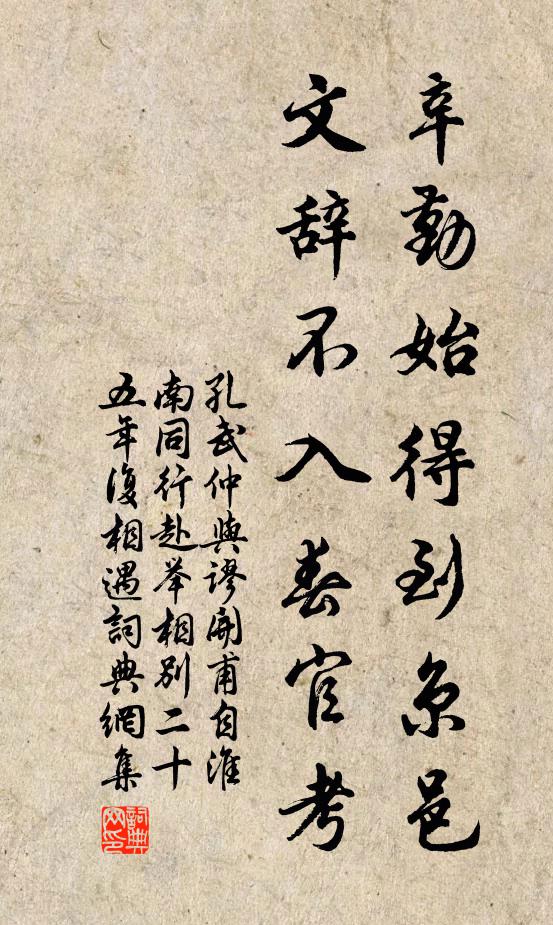 辛勤始得到京邑
文辞不入春官考
孔武仲與謬開甫自淮
南同行赴举相别二十
五年復相遇詞典網集
詞典网印